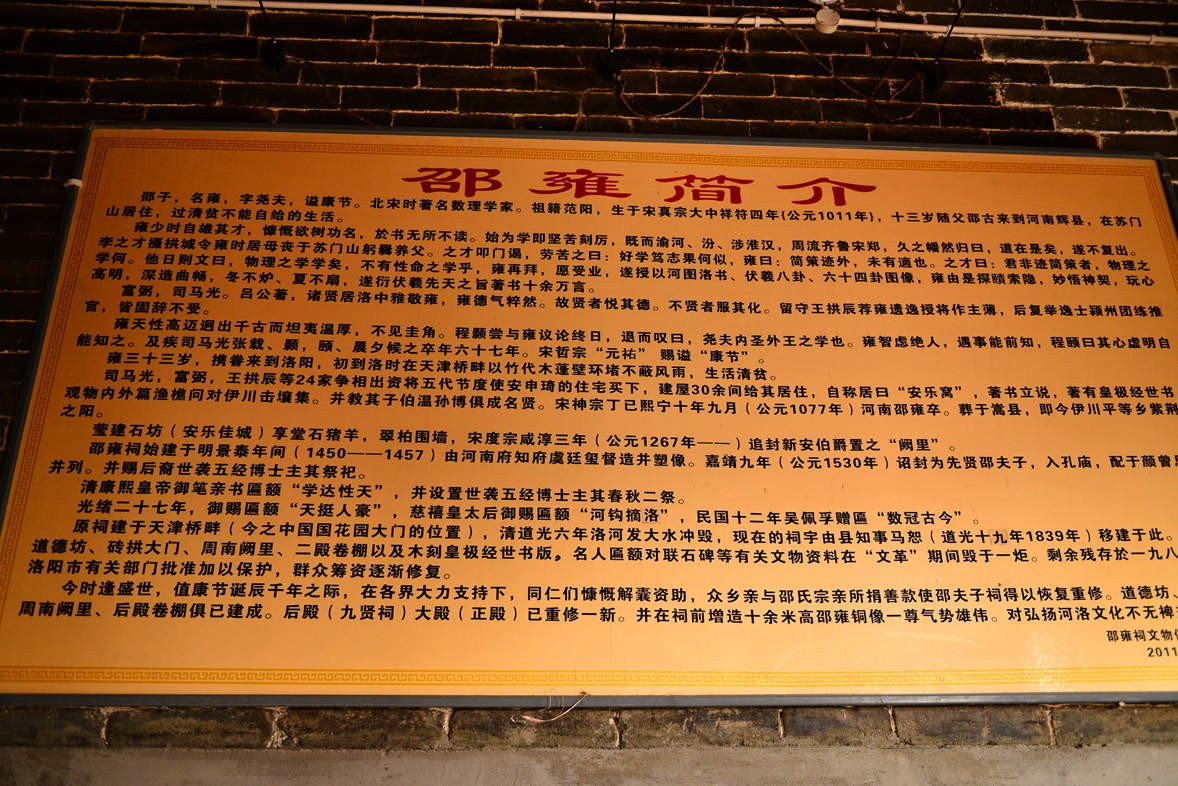 邵雍简介
邵子，名雍，字尧夫，谥康节。北宋时著名数理学家。祖籍范阳，生于宋真宗大中祥符四年(公元1011年)，十三岁随父邵古来到河南辉县，在苏门
山居住，过清贫不能自给的生活。
雍少时自雄其才，慷慨欲树功名，於书无所不读。始为学即坚苦刻厉，既而渝河、汾、涉淮汉，周流齐鲁宋郑，久之幡然归曰，道在是矣，遂不复出。
李之才摄拱城令雍时居母丧于苏门山躬爨养父。之才叩门谒，劳苦之曰：好学笃志果何似，雍曰：简策迹外，未有適也。之才曰：君非迹简策者，物理之
学何。他日则文曰，物理之学学矣，不有性命之学乎，雍再拜，愿受业，遂授以河图洛书、伏羲八卦、六十四卦图像，雍由是探赜索隐，妙悟神契，玩心
高明，深造曲畅，冬不炉、夏不扇，遂衍伏羲先天之旨著书十余万言。
富弼，司马光。吕公著，诸贤居洛中雅敬雍，雍德气粹然。故贤者悦其德。不贤者服其化。留守王拱辰荐雍遗逸授将作主薄，后复举逸士颍州团练推
官，皆固辞不受。
雍天性高迈迥出千古而坦夷温厚，不见圭角。程颢尝与雍议论终日，退而叹曰，尧夫内圣外王之学也。雍智虑绝人，遇事能前知，程颐曰其心虚明自
能知之。及疾司马光张载、颢，颐、晨夕候之卒年六十七年。宋哲宗“元祐” 赐谥“康节”。
雍三十三岁，携眷来到洛阳，初到洛时在天津桥畔以竹代木蓬壁环堵不蔽风雨，生活清贫。
司马光，富弼，王拱辰等24家争相出资将五代节度使安申琦的住宅买下，建屋30余间给其居住，自称居曰“安乐窝”，著书立说，著有皇极经世书
观物内外篇渔樵问对伊川击壤集。并教其子伯温孙博俱成名贤。宋神宗丁已熙宁十年九月（公元1077年）河南邵雍卒。葬于嵩县，即今伊川平等乡紫荆
之阳。
莹建石坊（安乐佳城）享堂石猪羊，翠柏围墙，宋度宗咸淳三年（公元1267年——）追封新安伯爵置之“阙里”。
邵雍祠始建于明景泰年间（1450——1457）由河南府知府虞廷玺督造并塑像。嘉靖九年（公元1530年）诏封为先贤邵夫子，入孔庙，配于颜曾思
并列。并赐后裔世袭五经博士主其祭祀。
清康熙皇帝御笔亲书匾额“学达性天”，并设置世袭五经博士主其春秋二祭。
光绪二十七年，御赐匾额“天挺人豪”，慈禧皇太后御赐匾额“河钩摘洛”，民国十二年吴佩孚赠匾“数冠古今”。
原祠建于天津桥畔（今之中国国花园大门的位置），清道光六年洛河发大水冲毁，现在的祠字由县知事马恕（道光十九年1839年）移建于此。
道德坊、砖拱大门、周南阙里、二殿卷棚以及木刻皇极经世书版，名人匾额对联石碑等有关文物资料在“文革”期间毁于一炬。剩余残存於一九八
洛阳市有关部门批准加以保护，群众筹资逐渐修复。
今时逢盛世，值康节诞辰千年之际，在各界大力支持下，同仁们慷慨解囊资助，众乡亲与邵氏宗亲所捐善款使邵夫子祠得以恢复重修。道德坊、
周南阙里、后殿卷棚俱已建成。后殿（九贤祠）大殿（正殿）已重修一新。并在祠前增造十余米高邵雍铜像一尊气势雄伟。对弘扬河洛文化不无裨
邵雍祠文物
2011